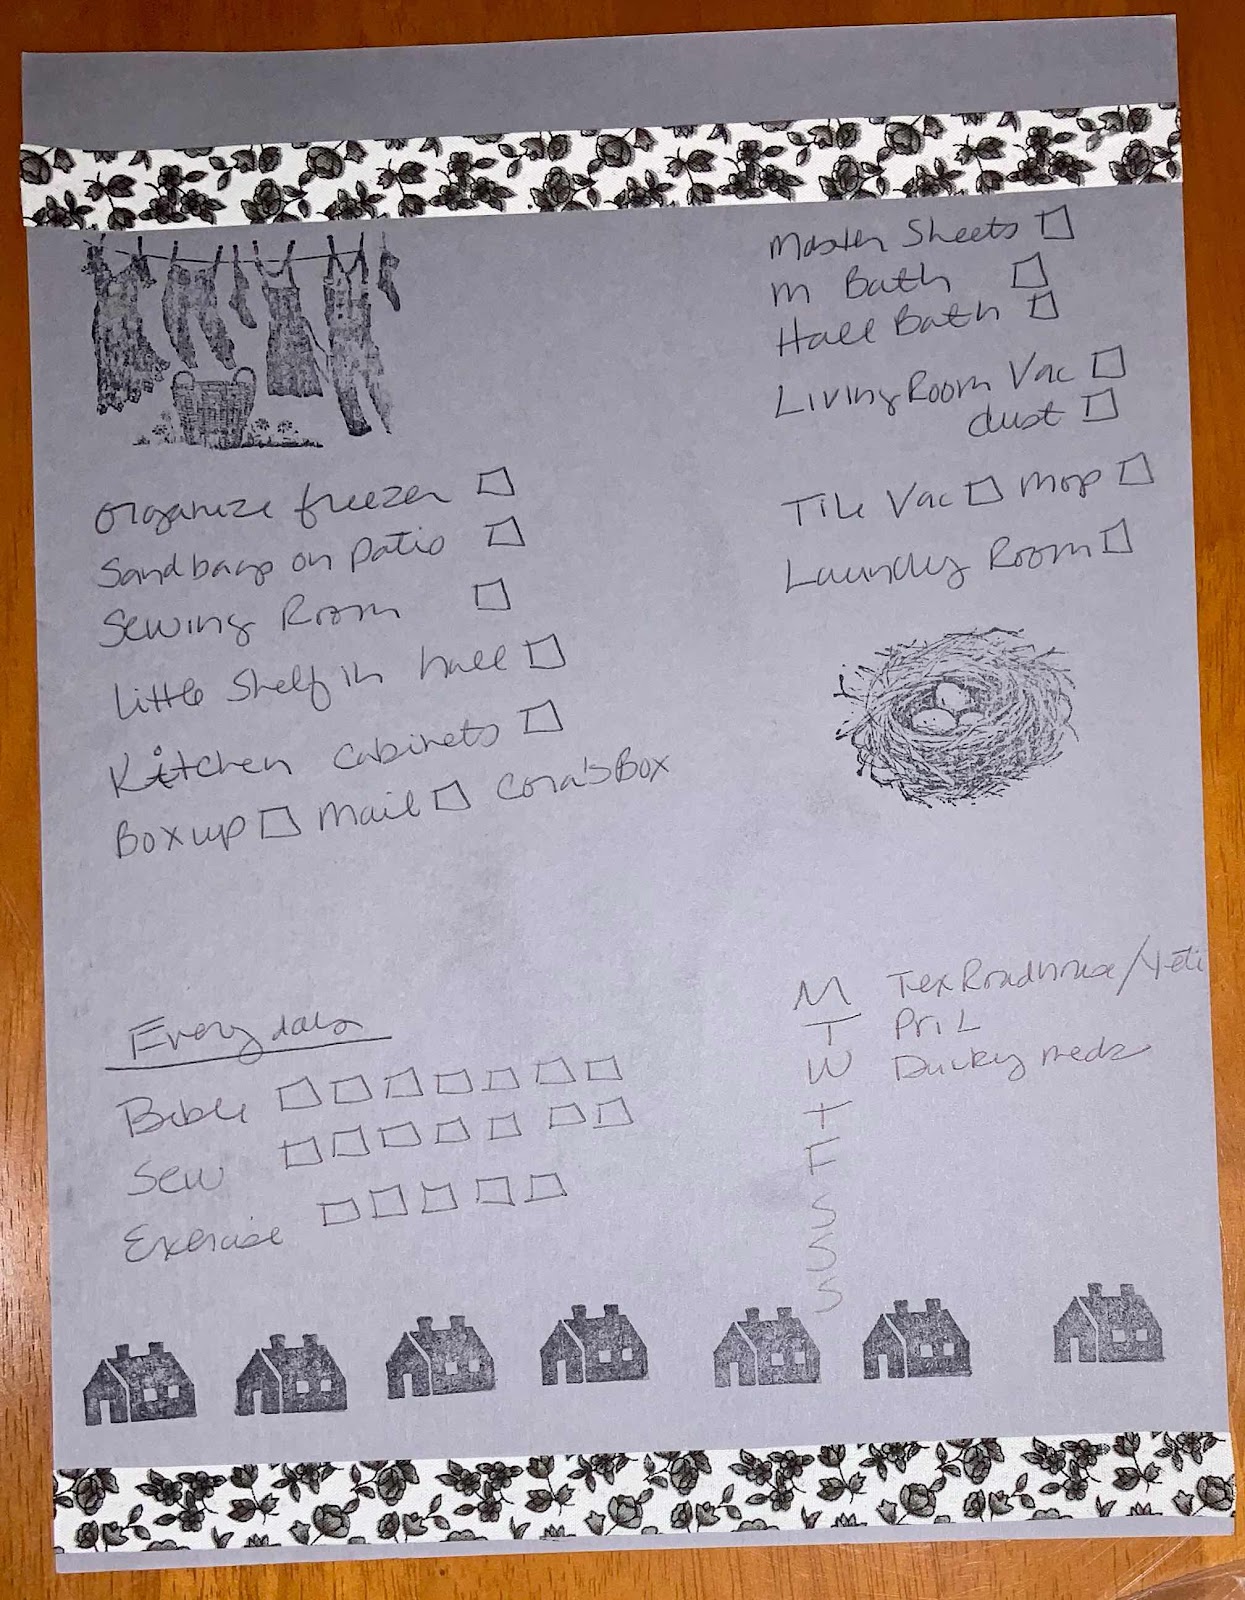 Master Sheets
M Bath
Hall Bath
Living Room Vac
dust
Tile Vac Mop
Laundry Room
Organize freezer
Sandbags on patio
Sewing Room
Little Shelf in hall
Kitchen Cabinets
Box up Mail Cora's Box
Every day
Bible
Sew
Exercise
M Tex Roadhouse/Yeti
T Pri L
W Ducky meds
T
F
S
S
S